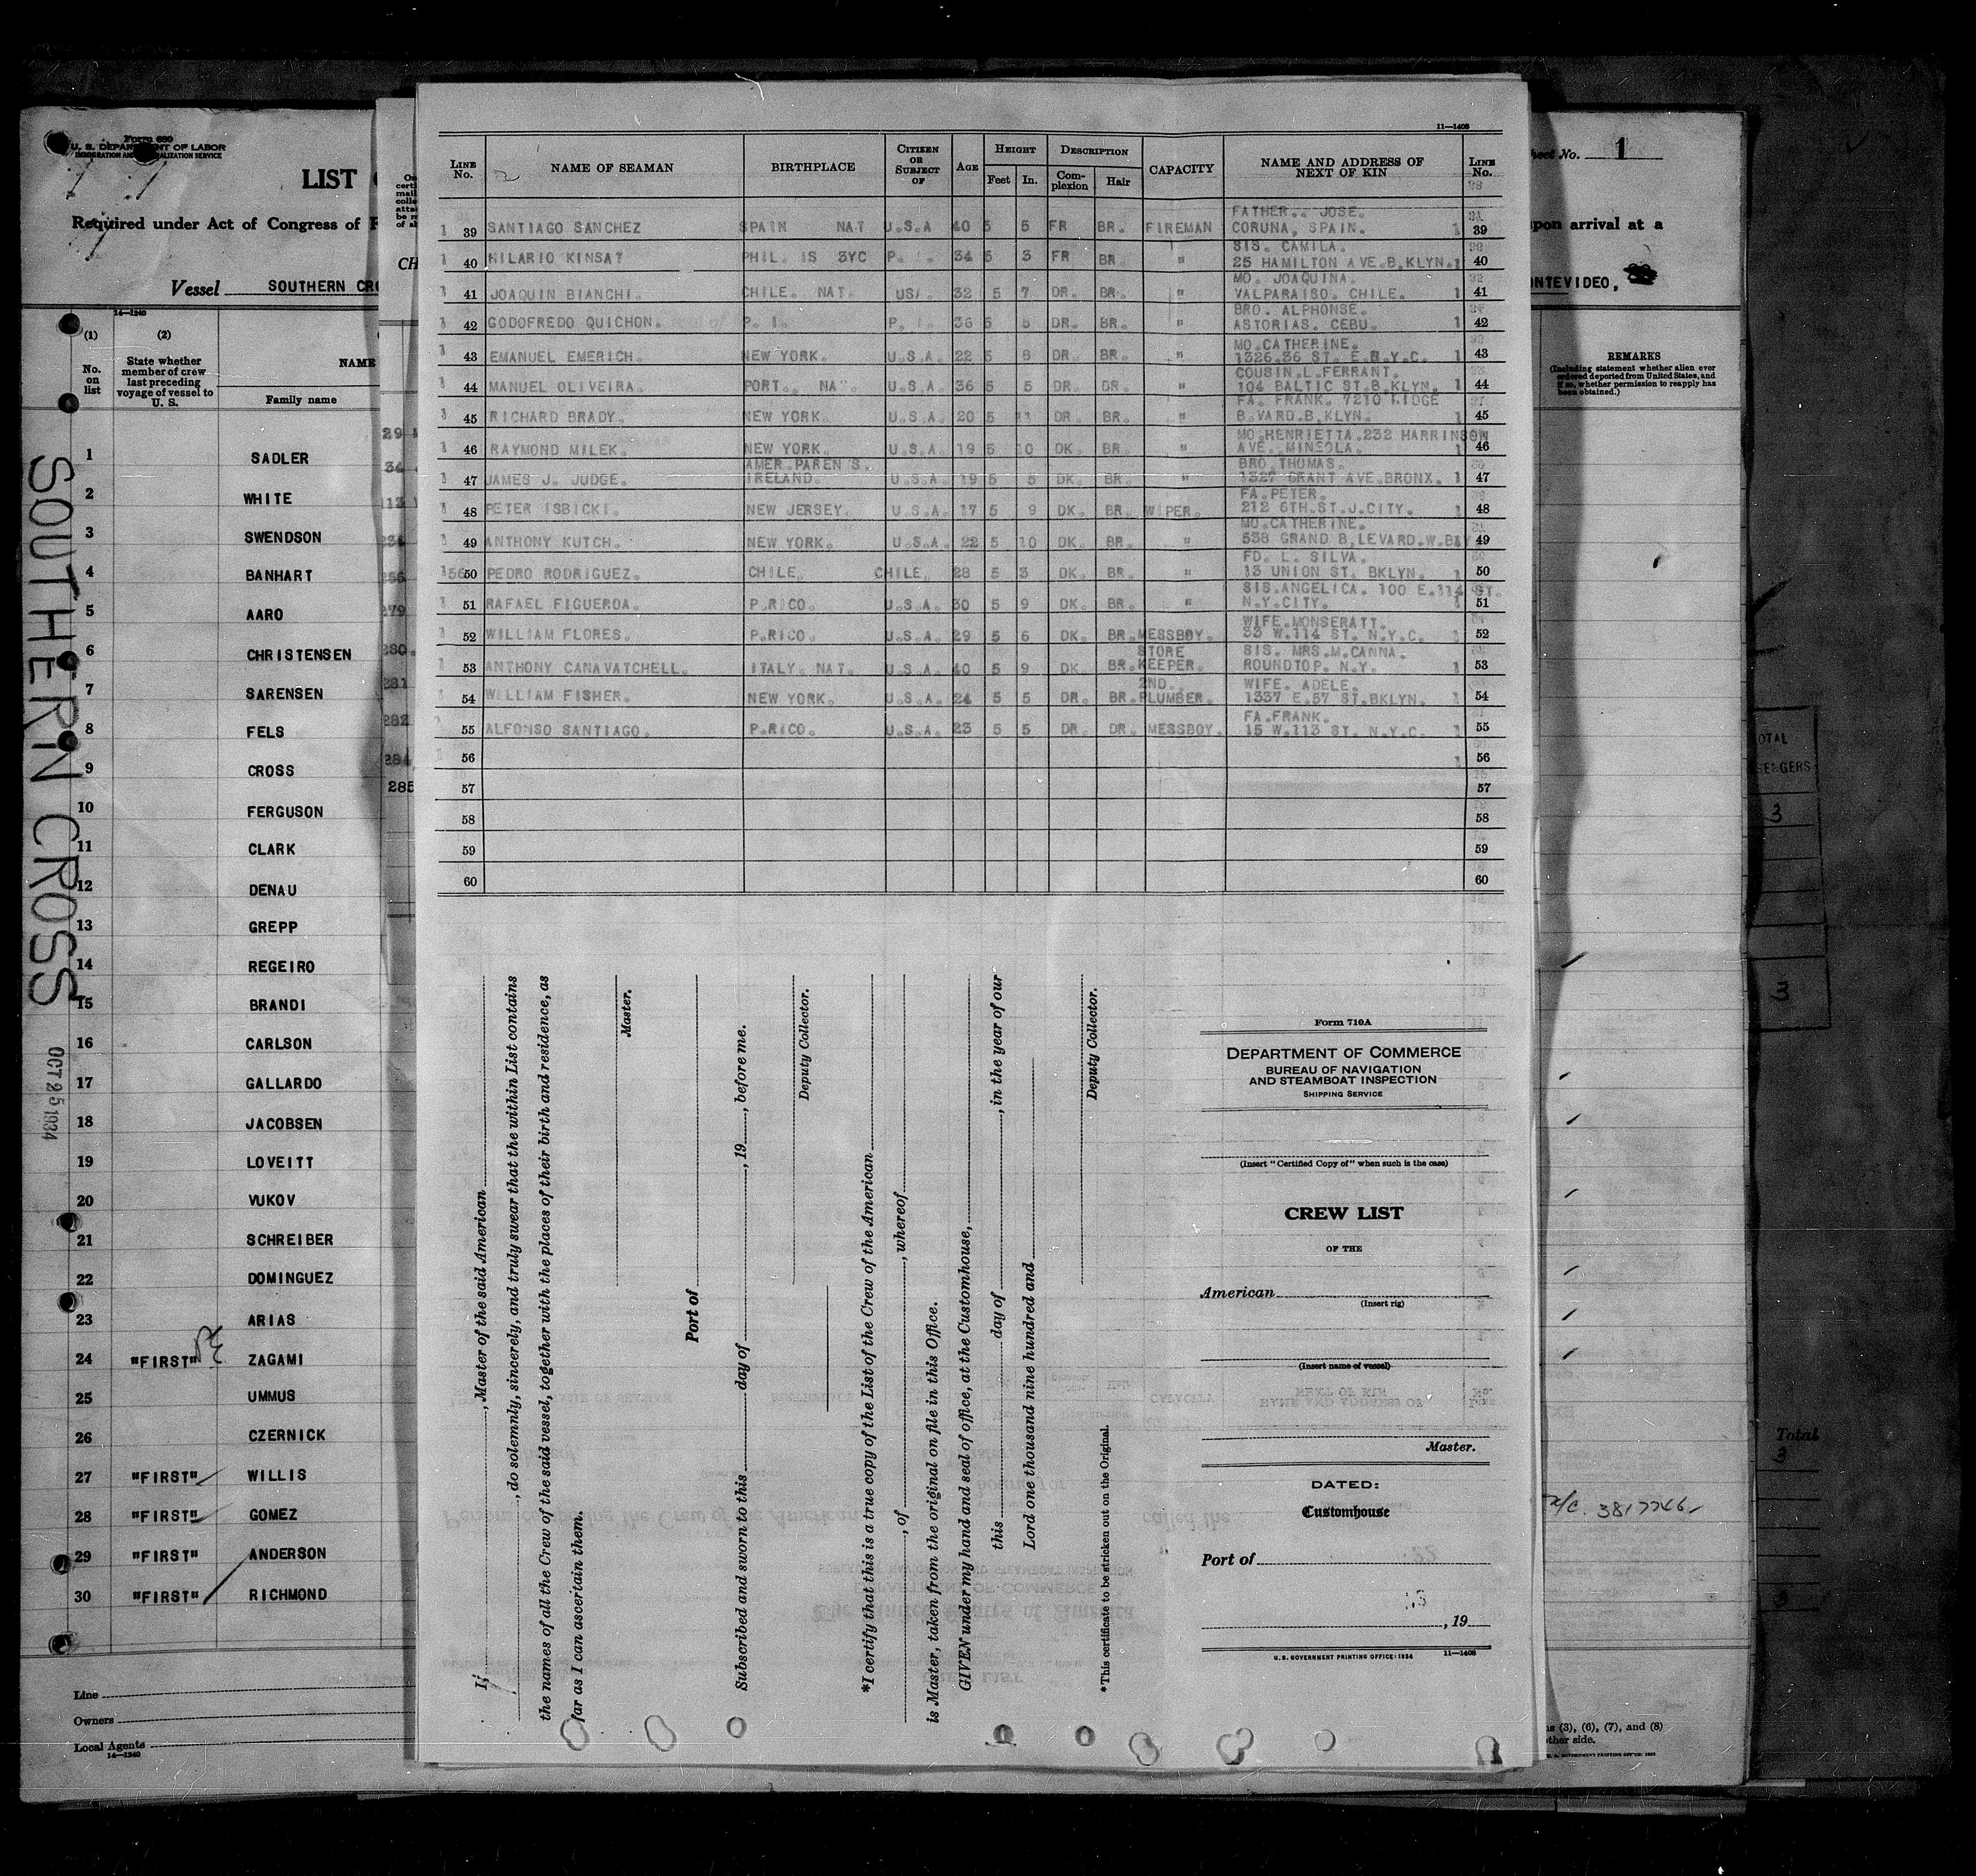 Form 680
U. S. DEPARTMENT OF LABOR
IMMIGRATION AND NATURALIZATION SERVICE
LIST
Required under Act of Congress of F
Vessel SOUTHERN CRO
14—1240
(1) (2)
No. on list
State whether member of crew last preceding voyage of vessel to U. S.
NAME
Family name
1 SADLER
2 WHITE
3 SWENDSON
4 BANHART
5 AARO
6 CHRISTENSEN
7 SARENSEN
8 FELS
9 CROSS
10 FERGUSON
11 CLARK
12 DENAU
13 GREPP
14 REGEIRO
15 BRANDI
16 CARLSON
17 GALLARDO
18 JACOBSEN
19 LOVEITT
20 VUKOV
21 SCHREIBER
22 DOMINGUEZ
23 ARIAS
24 "FIRST" ZAGAMI
25 UMMUS
26 CZERNICK
27 "FIRST" WILLIS
28 "FIRST" GOMEZ
29 "FIRST" ANDERSON
30 "FIRST" RICHMOND
Line
Owners
Local Agents
14—1240
SOUTHERN CROSS
OCT 25 1934
CH
29
34
113
234
256
279
280
281
282
284
285
11—1408
LINE No. NAME OF SEAMAN BIRTHPLACE CITIZEN OR SUBJECT OF AGE HEIGHT Feet In. DESCRIPTION Complexion Hair CAPACITY NAME AND ADDRESS OF NEXT OF KIN LINE No.
FATHER. JOSE.
39 SANTIAGO SANCHEZ SPAIN NAT U.S.A 40 5 5 FR BR. FIREMAN CORUNA, SPAIN. 1 39
SIS. CAMILA.
40 HILARIO KINSAT PHIL. IS 3YC P. I. 34 5 3 FR BR. " 25 HAMILTON AVE.B.KLYN. 1 40
MO. JOAQUINA.
41 JOAQUIN BIANCHI. CHILE. NAT. USA. 32 5 7 DR. BR. " VALPARAISO. CHILE. 1 41
BRO. ALPHONSE.
42 GODOFREDO QUICHON. P. I. P. I. 36 5 5 DR. BR. " ASTORIAS. CEBU. 1 42
MO.CATHERINE.
43 EMANUEL EMERICH. NEW YORK. U.S.A. 22 5 8 DR. BR. " 1326.36 ST. E.N.Y.C. 1 43
COUSIN.L.FERRANT.
44 MANUEL OLIVEIRA. PORT. NAT. U.S.A. 36 5 5 DR. DR. " 104 BALTIC ST.B.KLYN. 1 44
FA. FRANK. 7210 RIDGE
45 RICHARD BRADY. NEW YORK. U.S.A. 20 5 11 DR. BR. " B.VARD.B.KLYN. 1 45
MO.HENRIETTA.232 HARRINSON
46 RAYMOND MILEK. NEW YORK. U.S.A. 19 5 10 DK. BR. " AVE. MINEOLA. 1 46
AMER.PARENTS. BRO.THOMAS.
47 JAMES J. JUDGE. IRELAND. U.S.A. 19 5 5 DK. BR. " 1327 GRANT AVE.BRONX. 1 47
FA.PEYER.
48 PETER ISBICKI. NEW JERSEY. U.S.A. 17 5 9 DK. BR. WIPER. 212 6TH.ST.J.CITY. 1 48
MO.CATHERINE.
49 ANTHONY KUTCH. NEW YORK. U.S.A. 22 5 10 DK. BR. " 538 GRAND B.LEVARD.W.B. 49
FD. L. SILVA.
50 PEDRO RODRIGUEZ. CHILE. CHILE. 28 5 3 DK. BR. " 13 UNION ST. BKLYN. 1 50
SIS.ANGELICA. 100 E.114 ST.
51 RAFAEL FIGUEROA. P.RICO. U.S.A. 30 5 9 DK. BR. " N.Y.CITY. 1 51
WIFE.MONSERATT.
52 WILLIAM FLORES. P.RICO. U.S.A. 29 5 6 DK. BR. MESSBOY. 33 W.114 ST. N.Y.C. 1 52
STORE SIS. MRS.M.CANNA.
53 ANTHONY CANAVATCHELL. ITALY. NAT. U.S.A. 40 5 9 DK. BR. KEEPER. ROUNDTOP. N.Y. 1 53
2ND. WIFE. ADELE.
54 WILLIAM FISHER. NEW YORK. U.S.A. 24 5 5 DR. BR. PLUMBER. 1337 E.57 ST.BKLYN. 1 54
FA.FRANK.
55 ALFONSO SANTIAGO. P.RICO. U.S.A. 23 5 5 DR. DR. MESSBOY. 15 W.113 ST. N.Y.C. 1 55
56 56
57 57
58 58
59 59
60 60
I, , Master of the said American
, do solemnly, sincerely, and truly swear that the within List contains
the names of all the Crew of the said vessel, together with the places of their birth and residence, as
far as I can ascertain them.
Master.
Port of
Subscribed and sworn to this day of , 19 , before me.
Deputy Collector.
*I certify that this is a true copy of the List of the Crew of the American
, of , whereof
is Master, taken from the original on file in this Office.
GIVEN under my hand and seal of office, at the Customhouse,
this day of , in the year of our
Lord one thousand nine hundred and
Deputy Collector.
*This certificate to be stricken out on the Original.
Form 710A
DEPARTMENT OF COMMERCE
BUREAU OF NAVIGATION
AND STEAMBOAT INSPECTION
SHIPPING SERVICE
(Insert "Certified Copy of" when such is the case)
CREW LIST
OF THE
American
(Insert rig)
(Insert name of vessel)
Master.
DATED:
Customhouse
Port of
, 19
U. S. GOVERNMENT PRINTING OFFICE: 1934 11—1408
Sheet No. 1
upon arrival at a
ONTEVIDEO,
REMARKS
(Including statement whether alien ever ordered deported from United States, and if so, whether permission to reapply has been obtained.)
TOTAL
SENGERS
3
3
Total
3
3
ns (3), (6), (7), and (8)
other side.